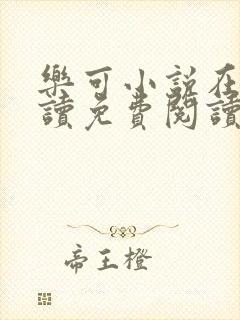 樂可小說在
讀免費閱讀
帝王橙